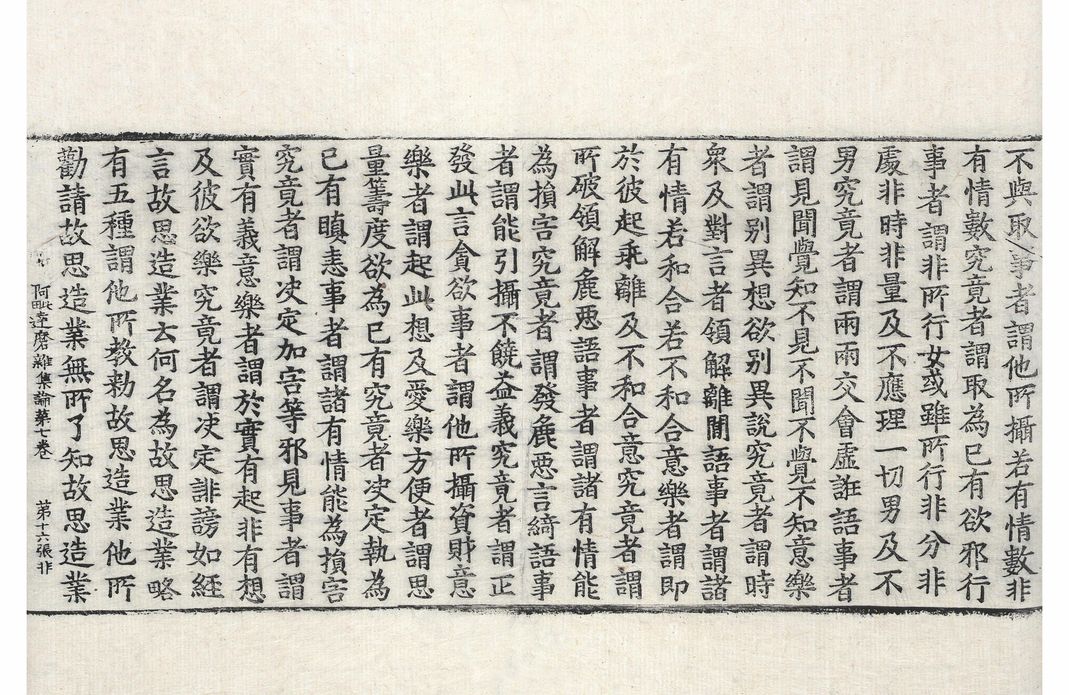 不與取事者謂他所攝若有情數非
有情數究竟者謂取為己有欲邪行
事者謂非所行女或雖所行非分非
處非時非量及不應理一切男及不
男究竟者謂兩兩交會虛誑語事者
謂見聞覺知不見不聞不覺不知意樂
者謂別異想欲別異說究竟者謂時
衆及對言者領解離間語事者謂諸
有情若和合若不和合意樂者謂即
於彼起乖離及不和合意究竟者謂
所破領解麁惡語事者謂諸有情能
為損害究竟者謂發麁惡言綺語事
者謂能引攝不饒益義究竟者謂正
發此言貪欲事者謂他所攝資財意
樂者謂起此想及愛樂方便者謂思
量籌度欲為己有究竟者决定執為
己有瞋恚事者謂諸有情能為損害
究竟者謂决定加害等邪見事者謂
實有義意樂者謂於實有起非有想
及彼欲樂究竟者謂决定誹謗如經
言故思造業云何名為故思造業略
有五種謂他所教勑故思造業他所
勸請故思造業無所了知故思造業
阿毗達磨雜集論第七卷 第十六張 非